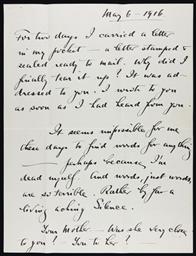 May 6 - 1916
For two days I carried a letter
in my pocket - a letter stamped &
sealed ready to mail. Why did I
finally tear it up? It was ad-
dressed to you. I wish to you
as soon as I had heard from you
It seems impossible for me
these days to find words for anything
- perhaps because I'm
dead myself. And words, just words
are so terrible. Rather by far a
living aching Silence.
Your Mother - Was she very close
to you? You to her?